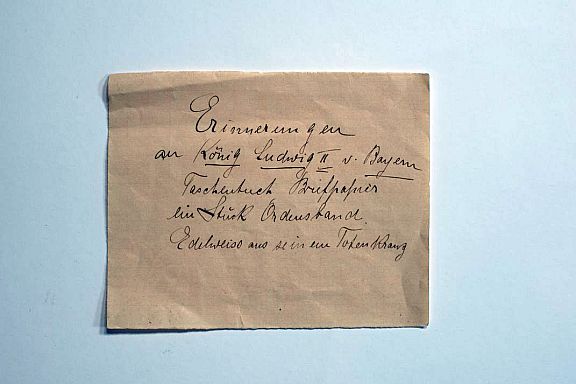 Erinnerungen
an König Ludwig II v. Bayern
Taschentuch Briefpapier
ein Stück Ordensband.
Edelweiss aus seinem Totenkranz